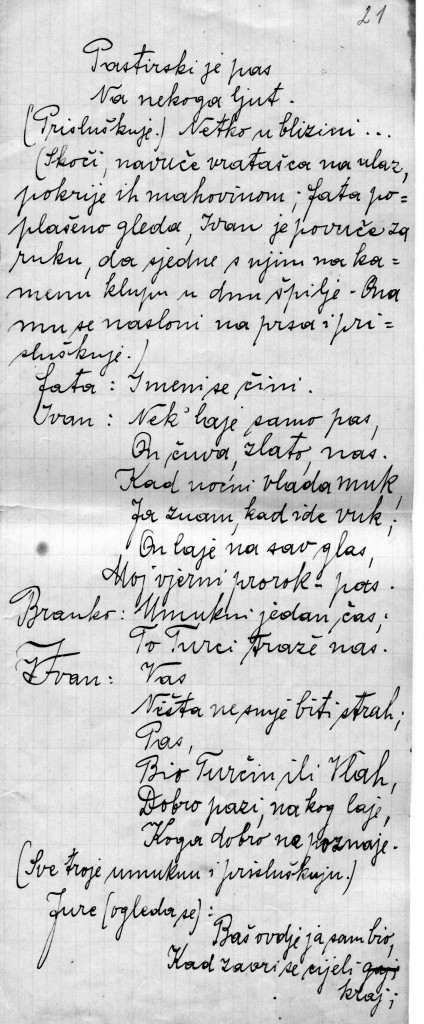 21
Pastirski je pas
Na nekoga ljut.
(Prisluškuje.) Netko u blizini...
(Skoči, navuče vratašca na ulaz,
pokrije ih mahovinom; Fata po=
plašeno gleda, Ivan je povuče za
ruku, da sjedne s njim na ka=
menu klupu u dnu špilje. Ona
mu se nasloni na prsa i pri=
sluškuje.)
Fata: I meni se čini.
Ivan: Nek' laje samo pas,
On čuva, zlato, nas.
Kad noćni vlada muk,
Ja znam, kad ide vuk;
On laje na sav glas,
Moj vjerni prorok - pas.
Branko: Umukni jedan čas;
To Turci traže nas.
Ivan: Vas
Ništa ne smije biti strah;
Pas,
Bio Turčin ili Vlah,
Dobro pazi, na kog laje,
Koga dobro ne poznaje.
(Sve troje umuknu i prisluškuju.)
Jure (ogleda se):
Baš ovdje ja sam bio,
Kad zavri se cijeli gaji
kraj;